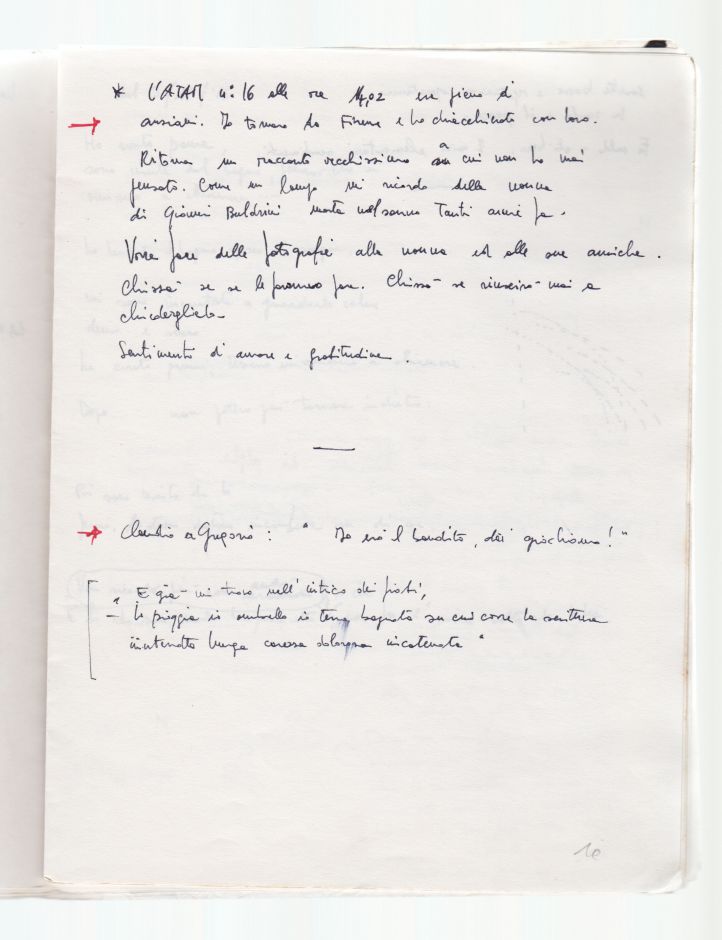 * L'ATAM n° 16 alle ore 14,02 era pieno di
anziani. Io tornavo da Firenze e ho chiacchierato con loro.
Ritorna un racconto vecchissimo a cui non ho mai
pensato. Come un lampo mi ricordo della nonna
di Giovanni Baldrini morta nel sonno tanti anni fa.
Vorrei fare delle fotografie alla nonna ed alle sue amiche.
Chissà se se le faranno fare. Chissà se riuscirò mai a
chiederglielo
Sentimento di amore e gratitudine.
Claudio a Gregorio: " Io ero il bandito, dai giochiamo! "
" E già mi trovo nell'intrico dei fiati,
– la pioggia io ombrello io terra bagnata su cui corre la
lunga carezza dolorosa incatenata "
10